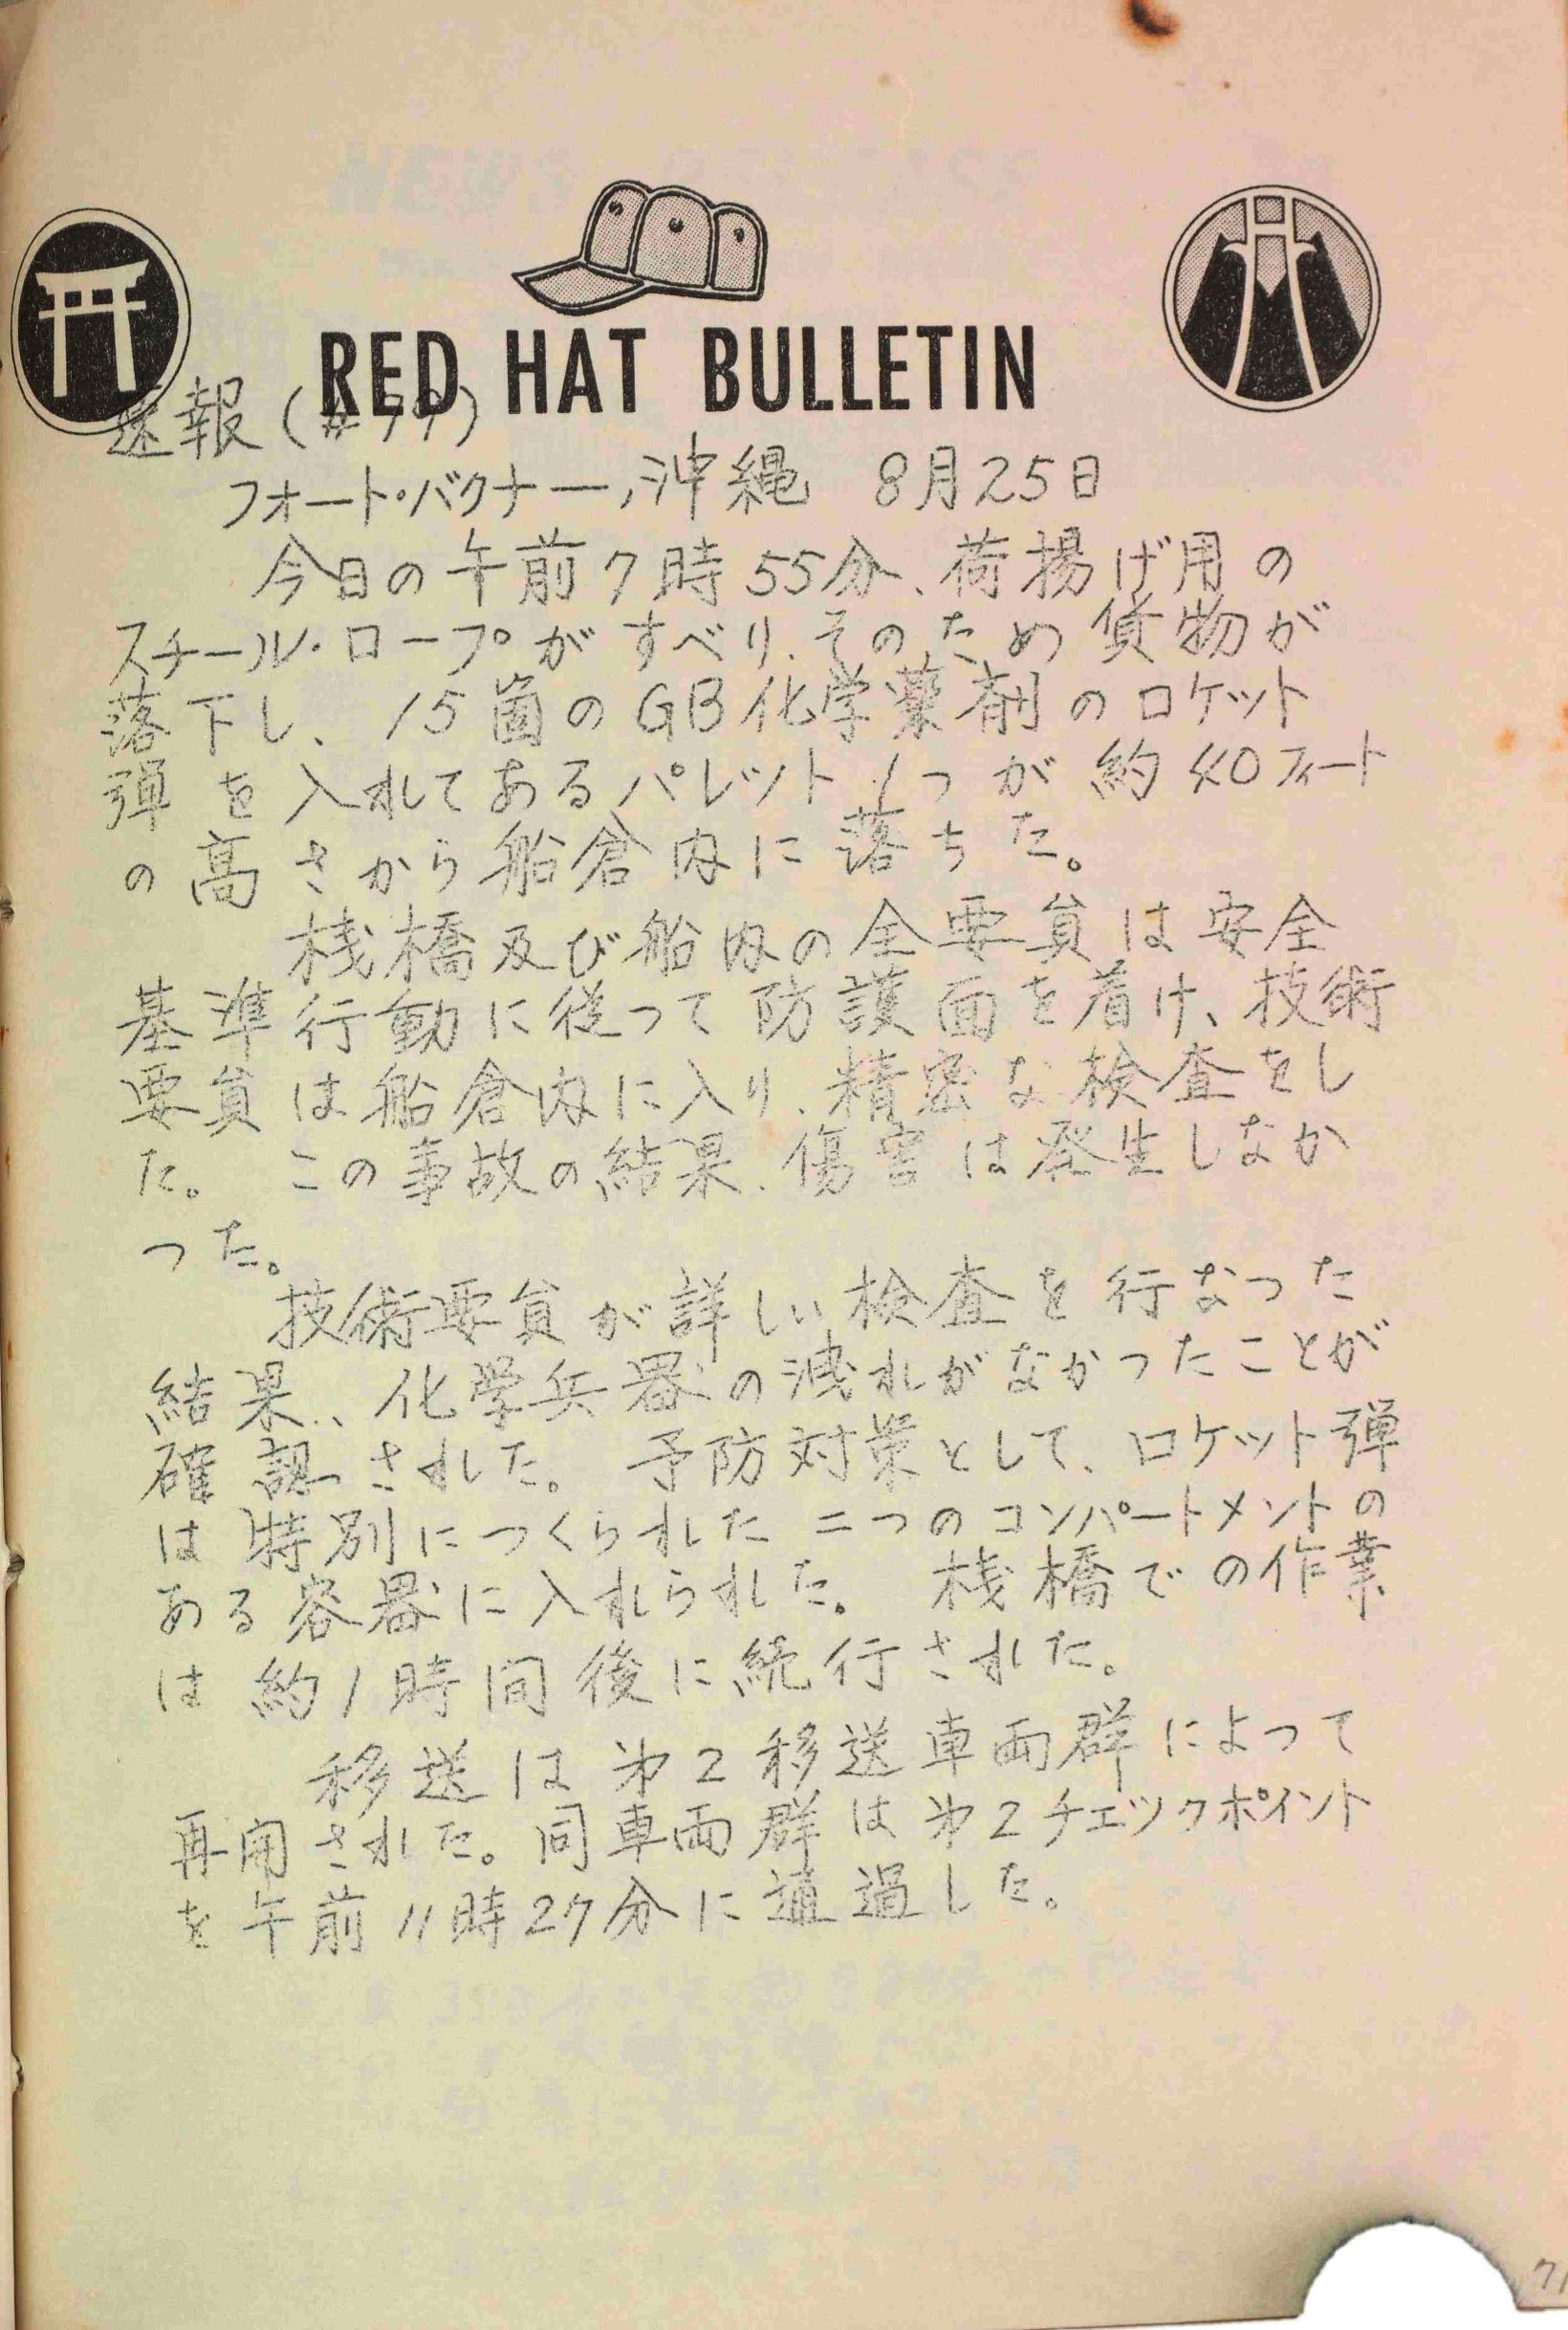 RED HAT BULLETIN
速報(#79)
フォート・バクナー,沖縄 8月25日
今日の午前7時55分、荷揚げ用の
スチール・ロープがすべり、そのため貨物が
落下し、15箇のGB化学薬剤のロケット
弾を入れてあるパレット1つが約40フィート
の高さから船倉内に落ちた。
桟橋及び船内の全要員は安全
基準行動に従って防護面を着け、技術
要員は船倉内に入り、精密な検査をし
た。この事故の結果、傷害は発生しなか
った。
技術要員が詳しい検査を行なった
結果、、化学兵器の洩れがなかったことが
確認された。予防対策として、ロケット弾
は特別につくられた二つのコンパートメントの
ある容器に入れられた。桟橋での作業
は約1時間後に続行された。
移送は第2移送車両群によって
再開された。同車両群は第2チェックポイント
を午前11時27分に通過した。
71